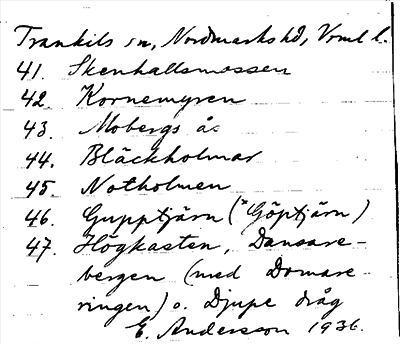 Trankils sn, Nordmarks hd, Vrml l.
41. Skenhallsmossen
42. Kornemyren
43. Mobergs å
44. Bläckholmar
45. Notholmen
46. Gupptjärn ("Göptjärn)
47. Högkasten, Dansare-
bergen (med Domare-
ringen) o. Djupe dråg
E. Andersson 1936.